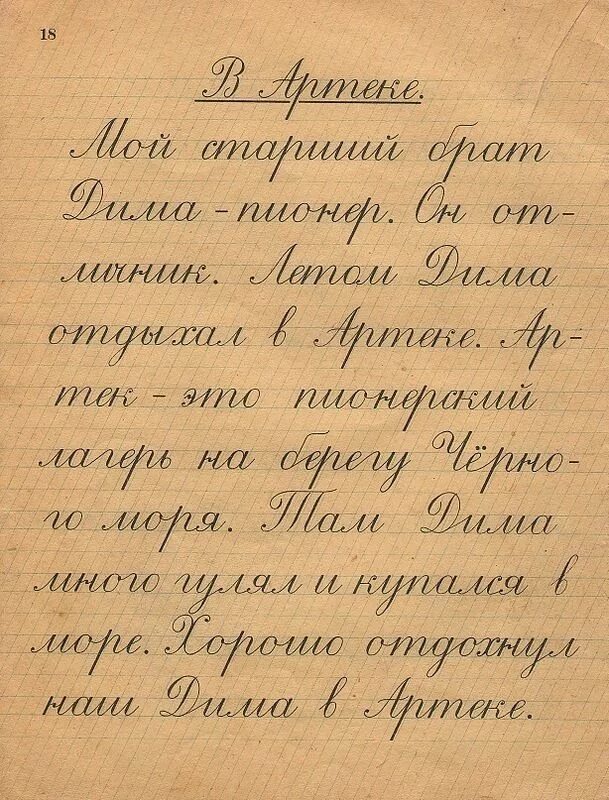 18
В Артеке.
Мой старший брат
Дима - пионер. Он от-
личник. Летом Дима
отдыхал в Артеке. Ар-
тек - это пионерский
лагерь на берегу Чёрно-
го моря. Там Дима
много гулял и купался в
море. Хорошо отдохнул
наш Дима в Артеке.